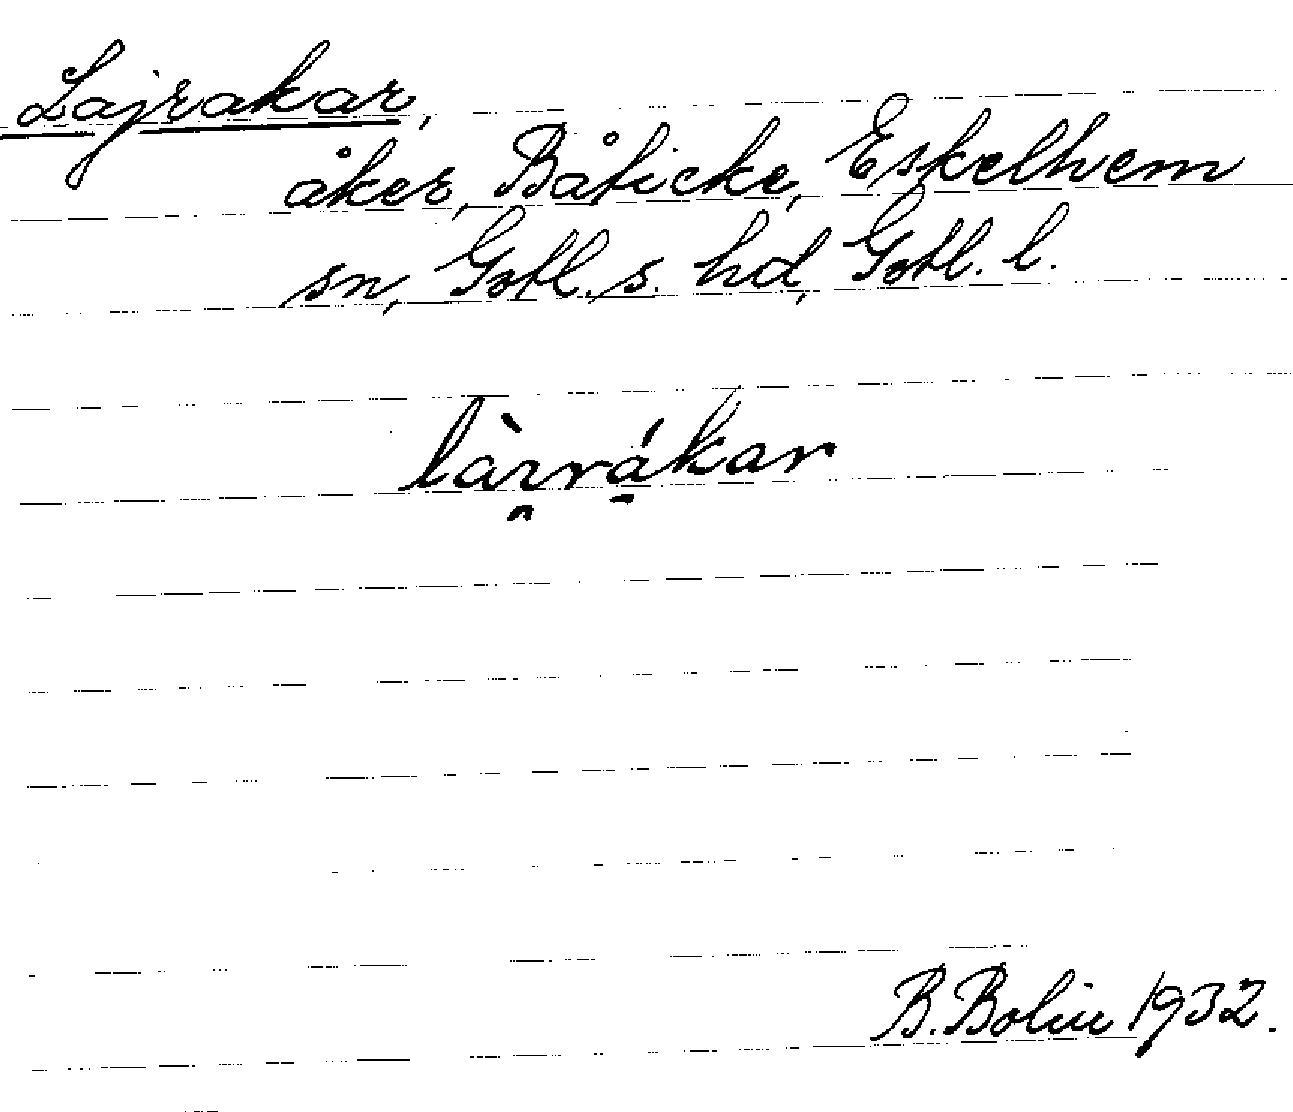 Lajrakar,
åker, Båticke, Eskelhem
sn, Gotl. s. hd, Gotl. l.
làrrákar
B. Bolin 1932.